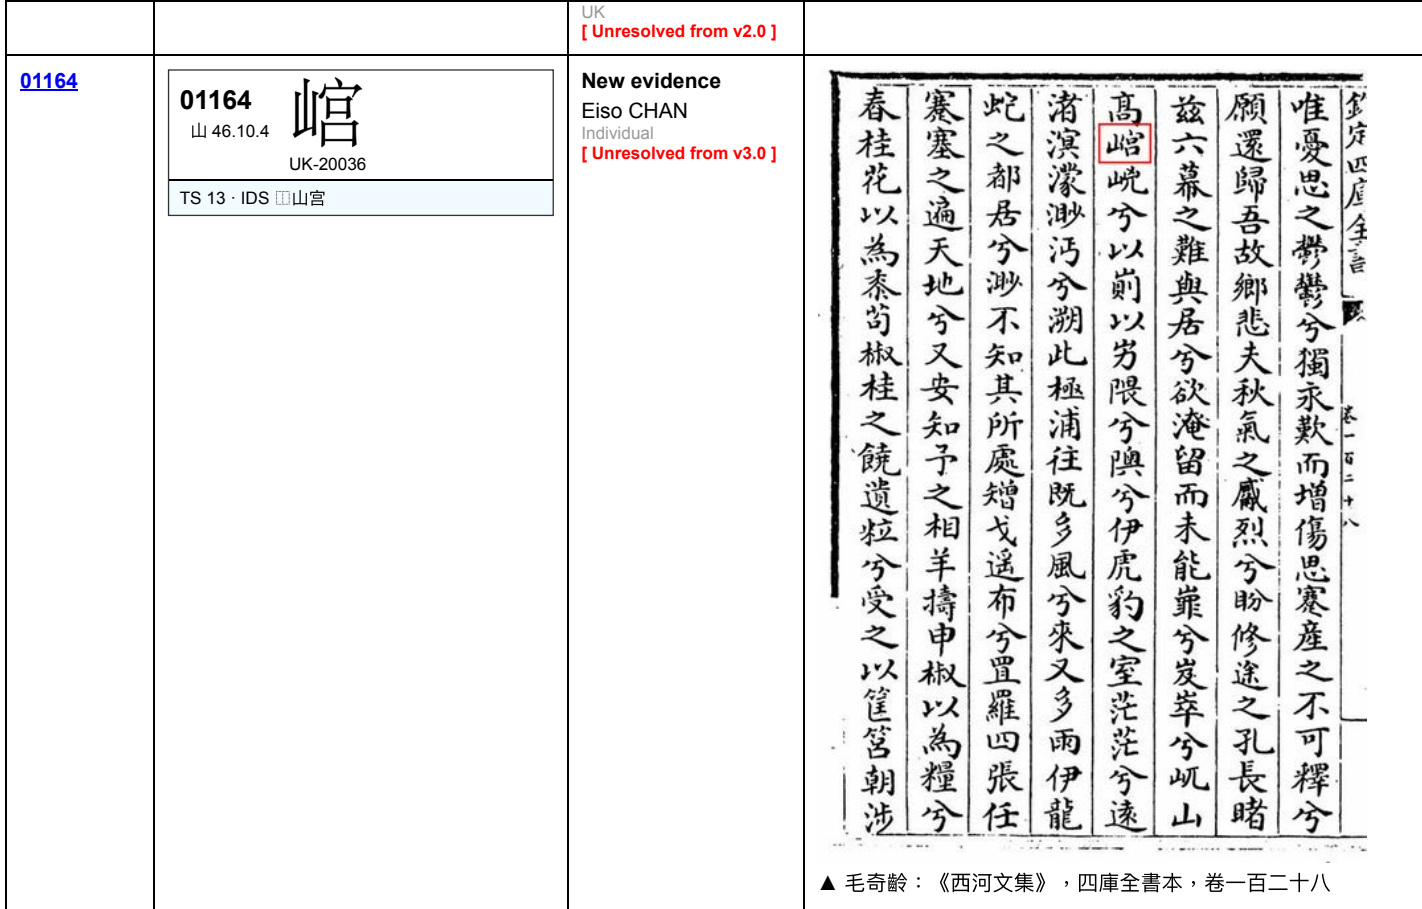 UK
[ Unresolved from v2.0 ]
01164
01164
山 46.10.4
㟲
UK-20036
TS 13 · IDS ⿰山宫
New evidence
Eiso CHAN
Individual
[ Unresolved from v3.0 ]
欽定四庫全書
卷一百二十八
唯憂思之鬱鬱兮獨永歎而增傷思蹇産之不可釋兮
願還歸吾故鄉悲夫秋氣之廠烈兮盼修途之孔長睹
兹六幕之難與居兮欲淹留而未能嶵兮岌崒兮屼山
髙兮以崱以屴隈兮隩兮伊虎豹之室茫茫兮逺
渚溟濛渺沔兮溯此極浦往既多風兮來又多雨伊龍
蛇之都居兮渺不知其所處矰弋遥布兮罝羅四張任
蹇蹇之遍天地兮又安知予之相羊擣申椒以為糧兮
春桂花以為黍茍椒桂之饒遺粒兮受之以筐筥朝涉
▲ 毛奇齡：《西河文集》，四庫全書本，卷一百二十八